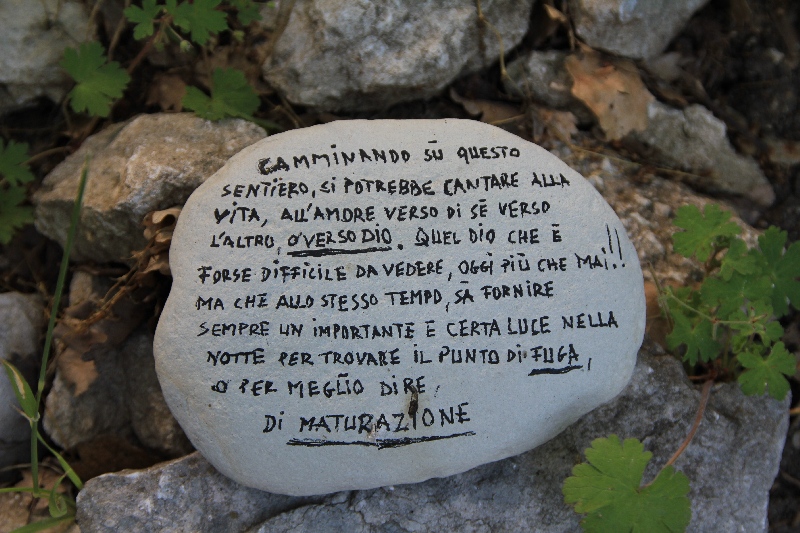 CAMMINANDO SŪ QUESTO
SENTIERO, SI POTREBBE CANTARE ALLA
VITA, ALL'AMORE VERSO DI SĒ VERSO
L'ALTRO, O'VERSO DIO. QUEL DIO CHE Ē
FORSE DIFFICILE DA VEDERE, OGGI PIŪ CHE MAI!!
MA CHĒ ALLO STESSO TEMPO, SĀ FORNIRE
SEMPRE UN IMPORTANTE E CERTA LUCE NELLA
NOTTE PER TROVARE IL PUNTO DI FUGA,
O PER MEGLIO DIRE,
DI MATURAZIONE